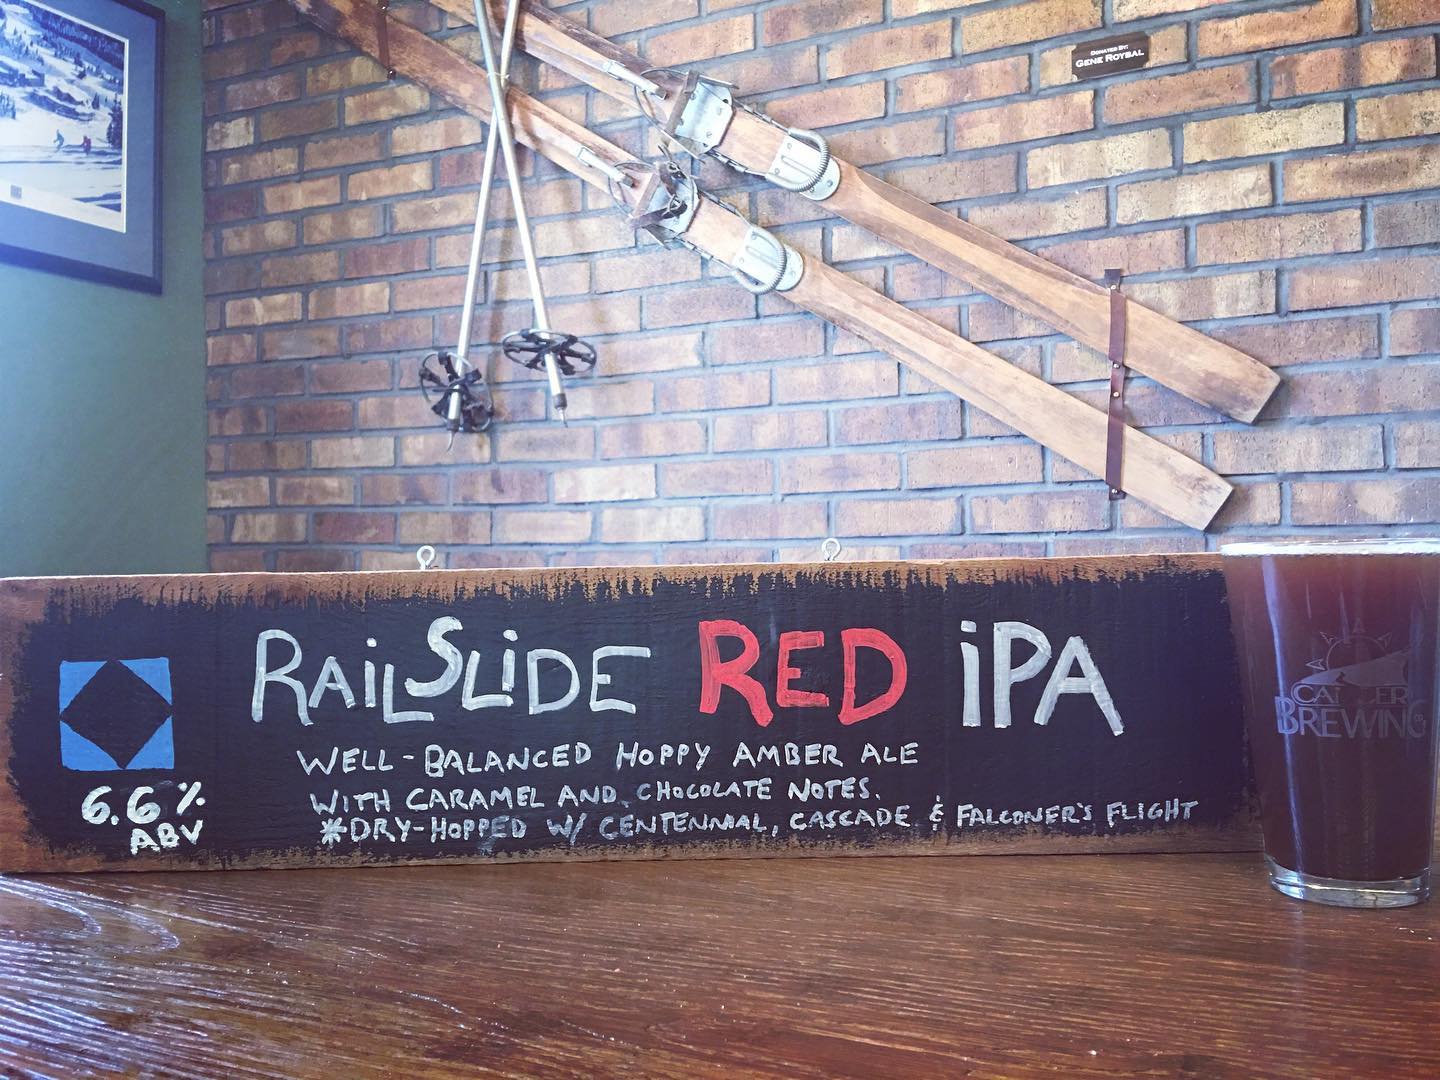 DONATED BY:
GENE ROYBAL
RAiLSLiDE RED iPA
WELL-BALANCED HOPPY AMBER ALE
WITH CARAMEL AND CHOCOLATE NOTES.
*DRY-HOPPED W/ CENTENNIAL, CASCADE & FALCONER'S FLIGHT
6.6%
ABV
BREWING